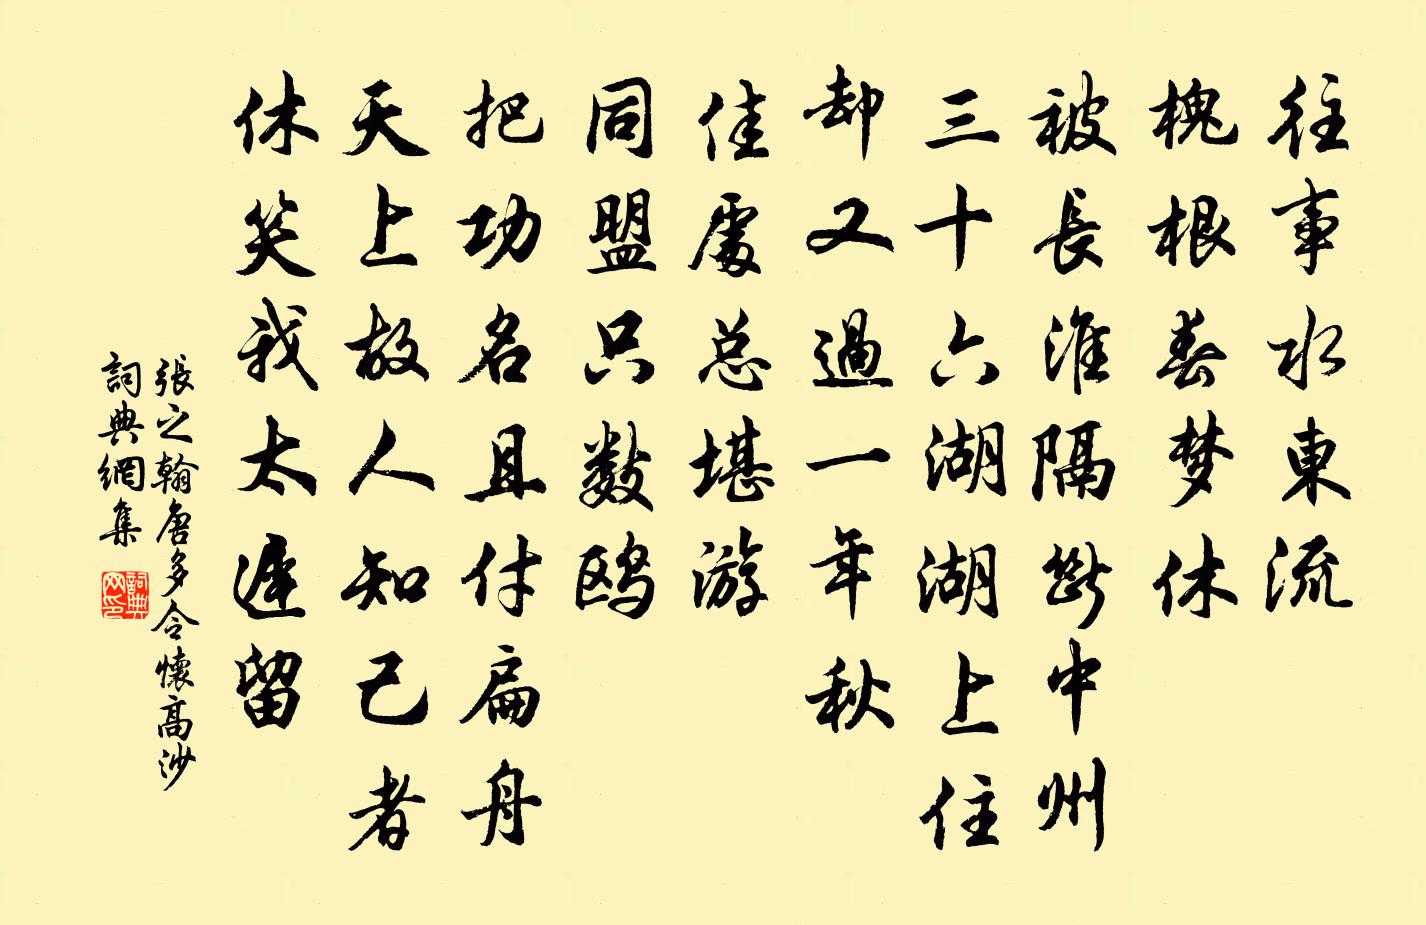 往事水東流
槐根春梦休
被長淮隔斷中州
三十六湖湖上住
却又過一年秋
佳處总堪游
同盟只数鸥
把功名且付扁舟
天上故人知己者
休笑我太遲留
張之翰唐多令懷高沙
詞典網集
詞典网印